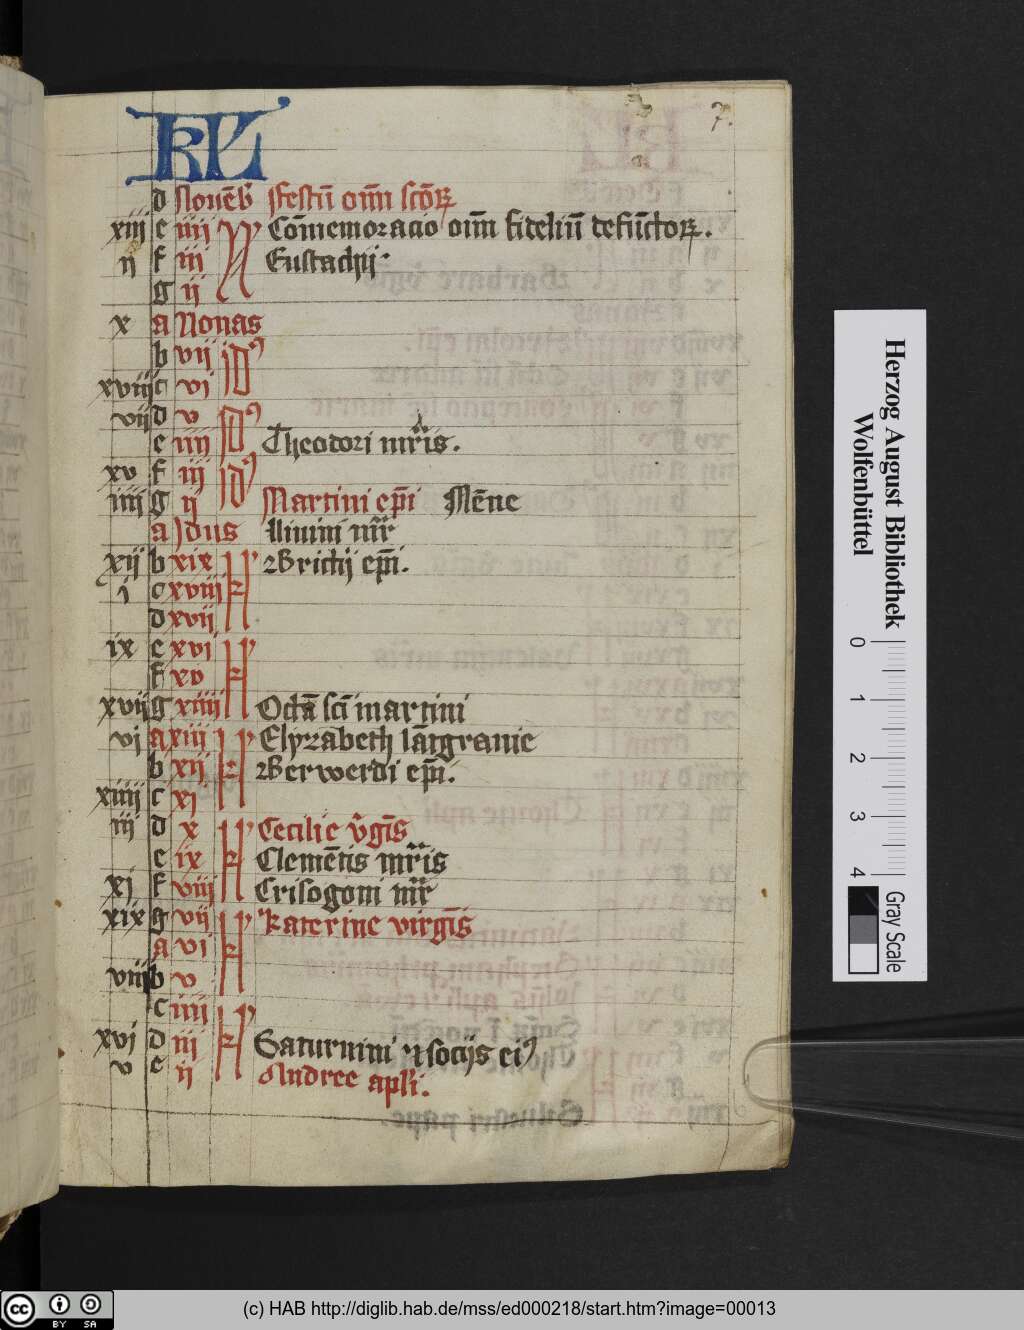 7.
KL
d Nouēbꝰ Festū om̄ scōꝝ
xiij e iiij N Cōmemoracio om̄ fidelium̄ defūctoꝝ.
ij f iii Eustachij.
g ij
x a Nonas
b vij Idꝰ
xviij c vi
vij d v Idꝰ
e iiij Theodori mr̄is.
xv f iij Idꝰ
iiij g ij Martini ep̄i Mēne
a Idus
xij b xix K Brictij ep̄i.
i c xviij
d xvij
ix e xvi K
f xv
xvij g xiiij Octā sc̄i martini
vi a xiij K Elyzabeth lātgrauie
b xij Berwerdi ep̄i.
xiiij c xi
iij d x K Cecilie v̄gīs
e ix Clemētis mr̄is
xi f viij Crisogoni mr̄
xix g vij K Katerine virgīs
a vi
viij b v
c iiij K
xvj d iij Saturnini ⁊ socijs eiꝰ
v e ij Andree apl̄i.
Herzog August Bibliothek
Wolfenbüttel
0 1 2 3 4
Gray Scale
cc BY SA
(c) HAB http://diglib.hab.de/mss/ed000218/start.htm?image=00013